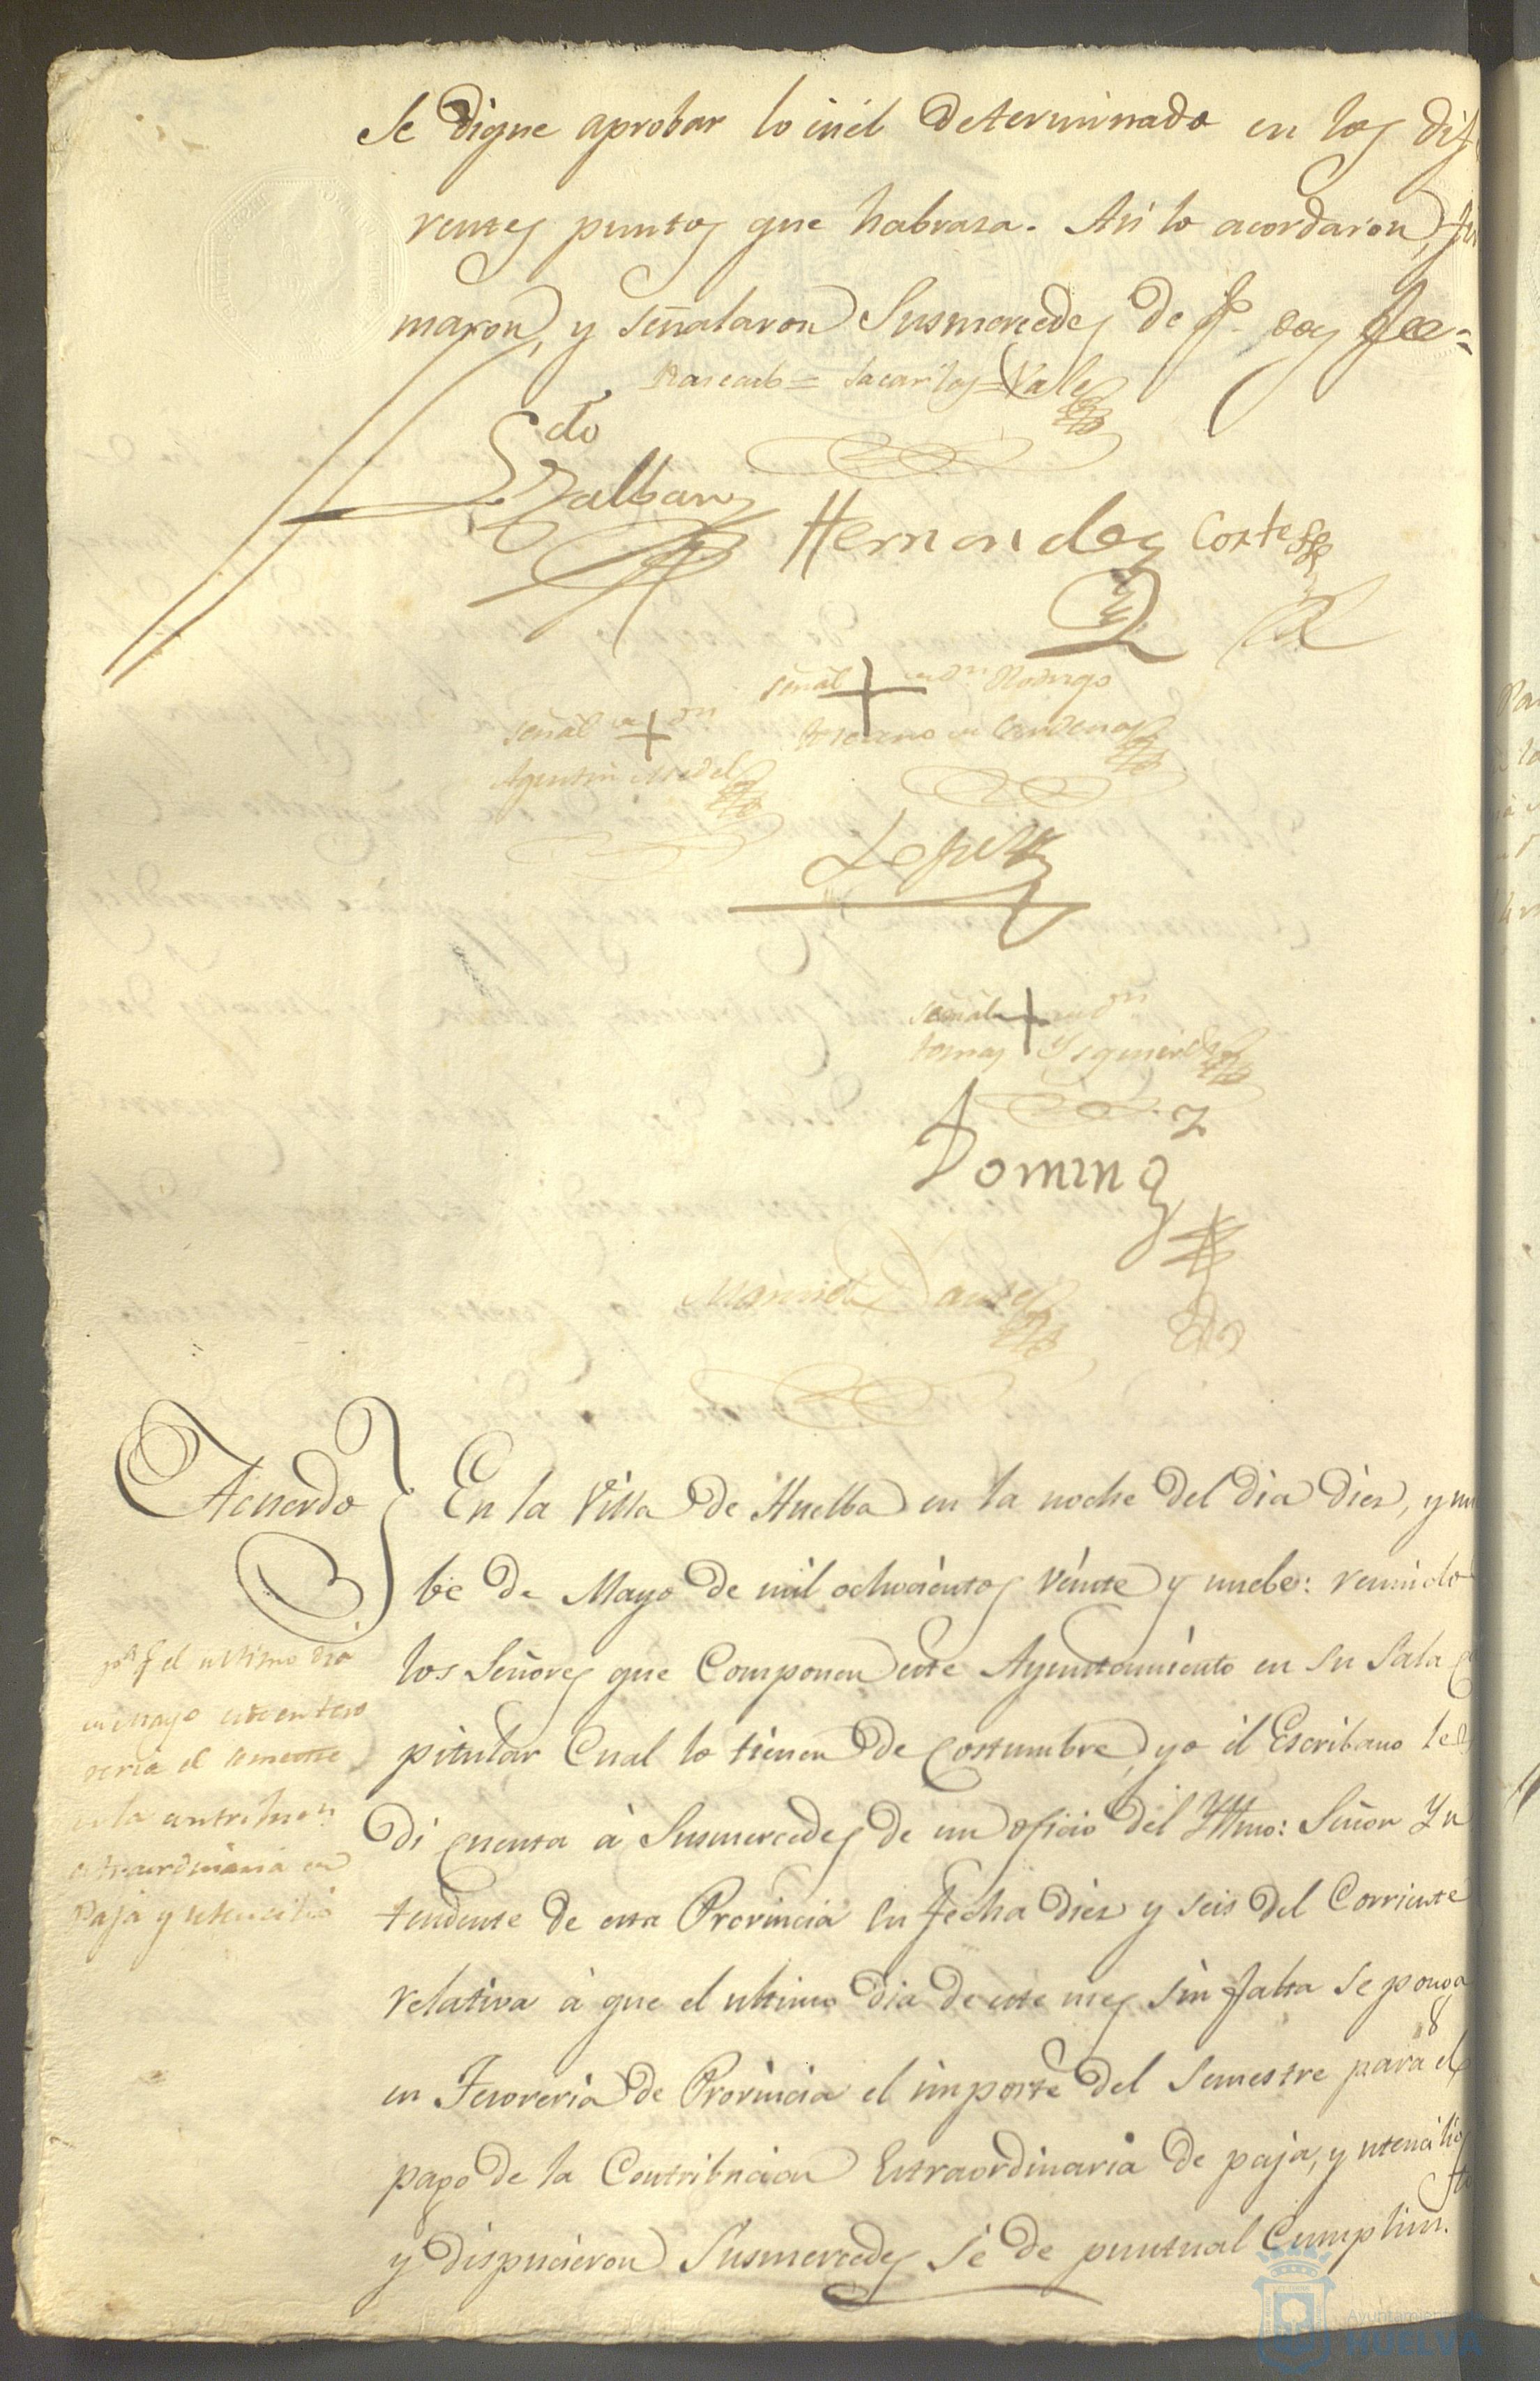 Se digne aprobar lo in el determinado en los dife
rentes puntos que habrasa. Asi lo acordaron, fir
maron, y señalaron Susmercedes de q.e doy fee=
Rascado= Vale
Ldo
Galban
Hernandez Cortes
señal + de Dn Rodrigo
de Cardenas
señal de + Dn
Agustin Medel
Lopez
señal + de Dn
tomas Ysquierdo
Doming.z
Acuerdo
En la Villa de Huelba en la noche del dia dies, y nu
be de Mayo de mil ochocientos veinte y nuebe: reunido
los Señores que Componen este Ayuntamiento en su Sala Ca
pitular Cual lo tienen de Costumbre, yo el Escribano les
di cuenta à Susmercedes de un oficio del Yltmo: Señor Yn
tendente de esta Provincia su fecha dies y seis del Corriente
relativa à que el ultimo dia de este mes sin falta se ponga
en Tesoreria de Provincia el importe del Semestre para el
pago de la Contribucion Extraordinaria de paja, y utencilios
y dispucieron Susmercedes se de puntual Cumplim.to
p.a q.e el ultimo dia
de Mayo este en teso
reria el semestre
de la contribuc.n
extraordinaria de
Paja y utencilio
Ayuntamiento
HUELVA